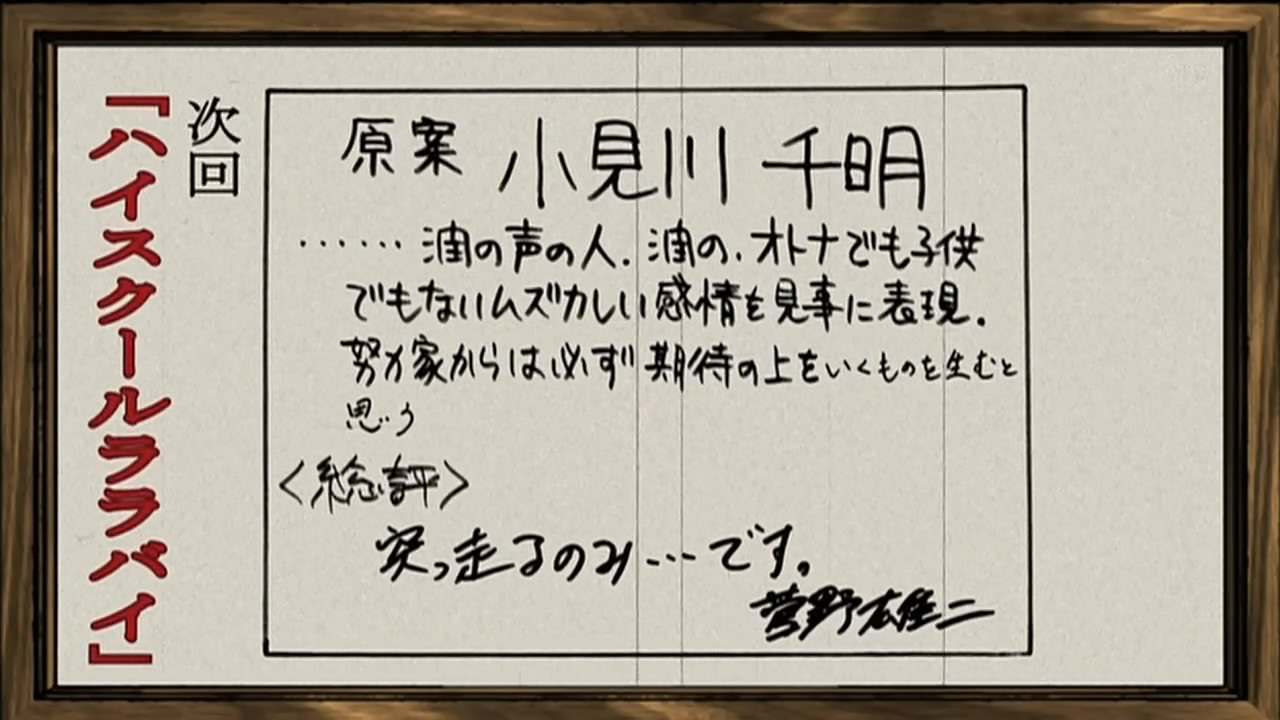 次回
「ハイスクールララバイ」
原案 小見川 千明
……澪の声の人。澪の、オトナでも子供
でもないムズカしい感情を見事に表現。
努力家からは必ず期待の上をいくものを生むと
思う
〈総評〉
突っ走るのみ…です。
菅野宏二